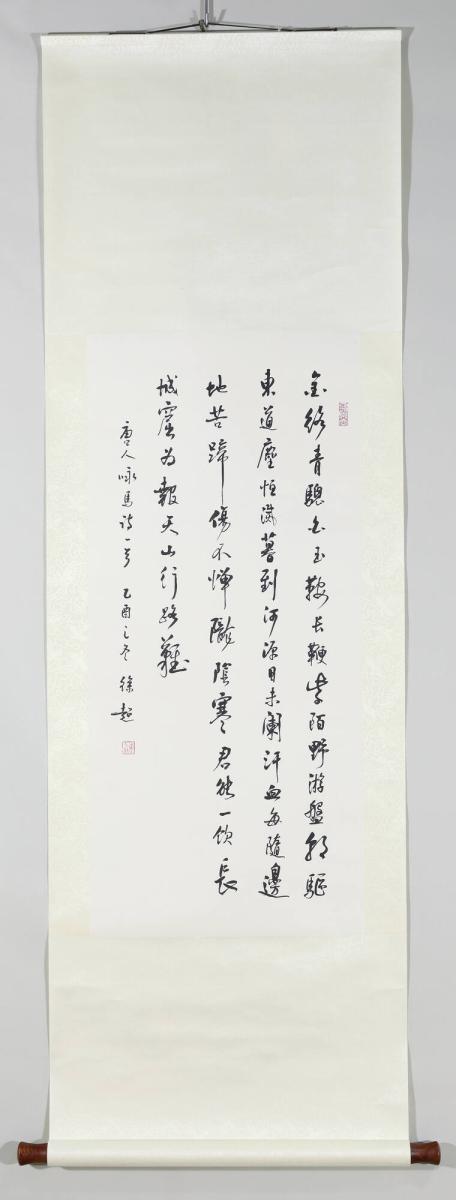 金絡青驄白玉鞍長鞭紫陌野游盤朝驅
東道塵恒滅暮到河源日未闌汗血每隨邊
地苦蹄傷不憚隴陰寒君能一飲長
城窟為報天山行路難
唐人咏馬詩一首 乙酉之冬 徐超